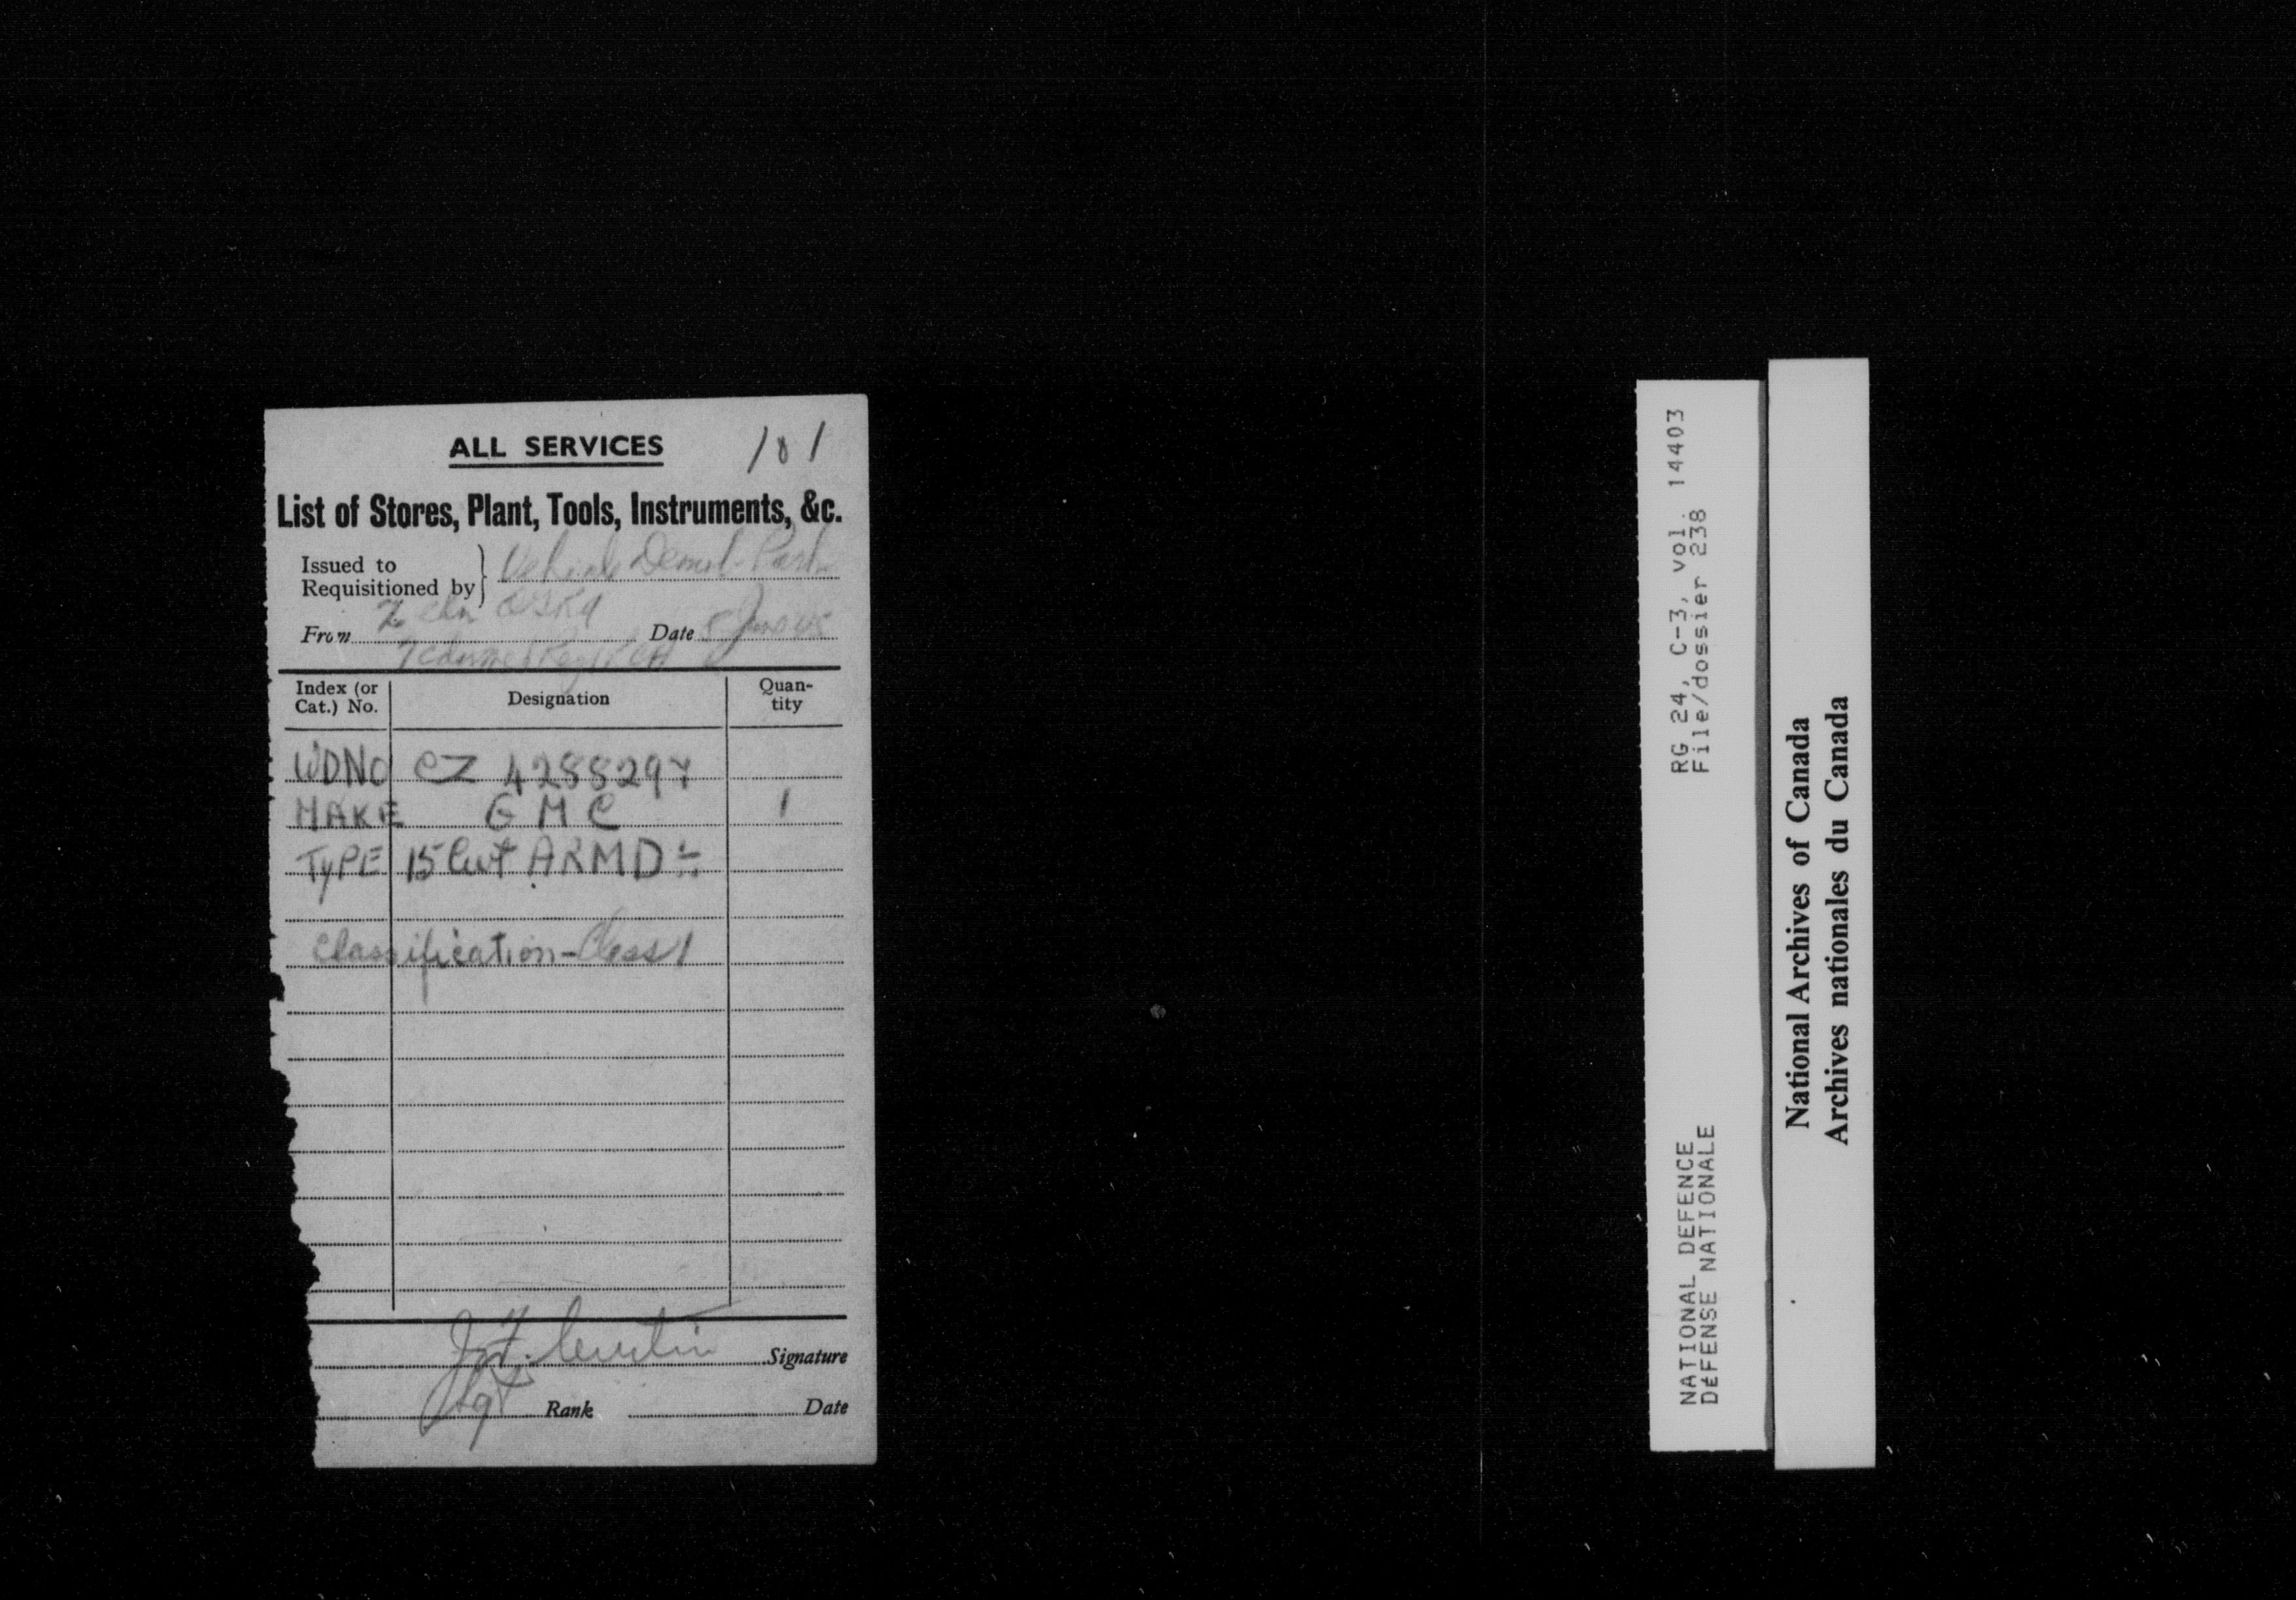 ALL SERVICES 101
List of Stores, Plant, Tools, Instruments, &c.
Issued to
Requisitioned by } Vehicle Demob. Park
From 2 Cdn Date 5 June 45
Index (or Cat.) No. Designation Quan-tity
WDNO CZ 4288297
MAKE GMC 1
TYPE 15 Cwt ARMD
Classification - Class 1
Signature
Sgt Rank Date
RG 24, C-3, vol. 14403
File/dossier 238
NATIONAL DEFENCE
DÉFENSE NATIONALE
National Archives of Canada
Archives nationales du Canada